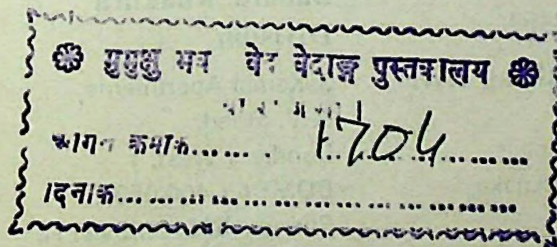 ❀ मुमुक्षु भव वेद वेदाङ्ग पुस्तकालय ❀
आगत क्रमांक...... . 1704..............
दिनांक.......................................